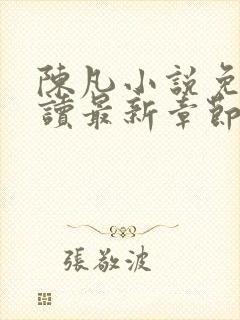 陳凡小説免
讀最新章節
張敬波